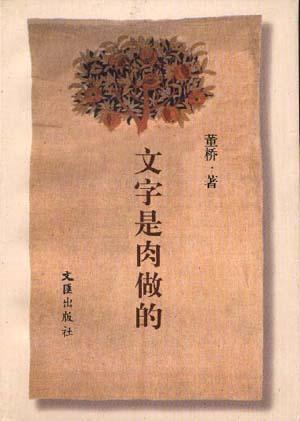 董桥·著
文字是肉做的
文匯出版社